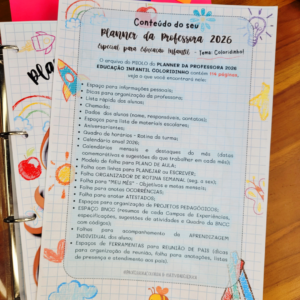 Conteúdo do seu
Planner da Professora 2026
Especial para Educação Infantil - Tema: Coloridinho!
O arquivo do MIOLO do PLANNER DA PROFESSORA 2026
EDUCAÇÃO INFANTIL COLORIDINHO contém 114 páginas,
veja o que você encontrará nele:
• Espaço para informações pessoais;
• Dicas para organização da professora;
• Lista rápida dos alunos;
• Chamada;
• Dados dos alunos (nome, responsáveis, contatos);
• Espaços para lista de materiais escolares;
• Aniversariantes;
• Quadro de horários - Rotina de turma;
• Calendário anual 2026;
• Calendários mensais e destaques do mês (datas
comemorativas e sugestões do que trabalhar em cada mês);
• Modelo de folha para PLANO DE AULA;
• Folha com linhas para PLANEJAR ou ESCREVER;
• Folha ORGANIZADOR DE ROTINA SEMANAL (seg. a sex);
• Folha para "MEU MÊS" - Objetivos e metas mensais;
• Folha para anotar OCORRÊNCIAS;
• Folha para anotar ATESTADOS;
• Espaços para organização de PROJETOS PEDAGÓGICOS;
• ESPAÇO BNCC (resumos de cada Campos de Experiências,
especificações, sugestões de atividades e Quadro da BNCC
com códigos);
• Folhas para acompanhamento da APRENDIZAGEM
INDIVIDUAL dos alunos;
• Espaços de FERRAMENTAS para REUNIÃO DE PAIS (dicas
para organização da reunião, folha para anotações, listas
de presença e atendimento aos pais)